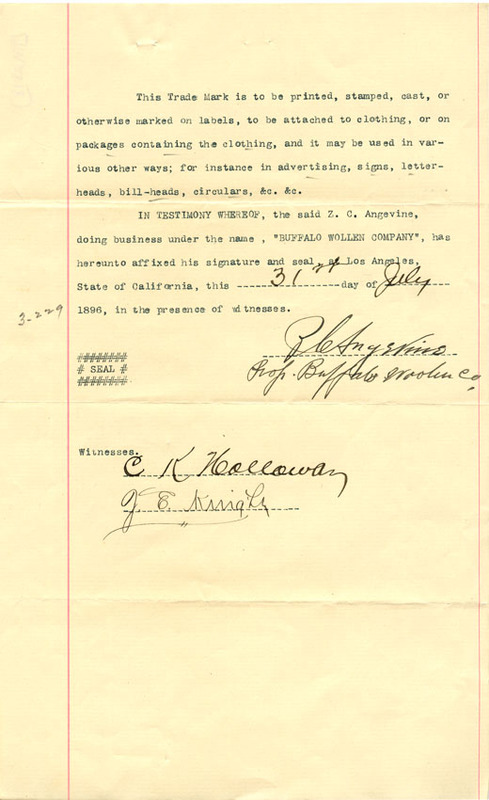 This Trade Mark is to be printed, stamped, cast, or
otherwise marked on labels, to be attached to clothing, or on
packages containing the clothing, and it may be used in var-
ious other ways; for instance in advertising, signs, letter-
heads, bill-heads, circulars, &c. &c.
IN TESTIMONY WHEREOF, the said Z. C. Angevine,
doing business under the name , "BUFFALO WOLLEN COMPANY", has
hereunto affixed his signature and seal, at Los Angeles,
State of California, this 31st day of July
1896, in the presence of witnesses.
3-229
Z C Angevine
Prop. Buffalo Woolen Co.
########
# SEAL #
########
Witnesses.
C K Holloway
J. E. Knight